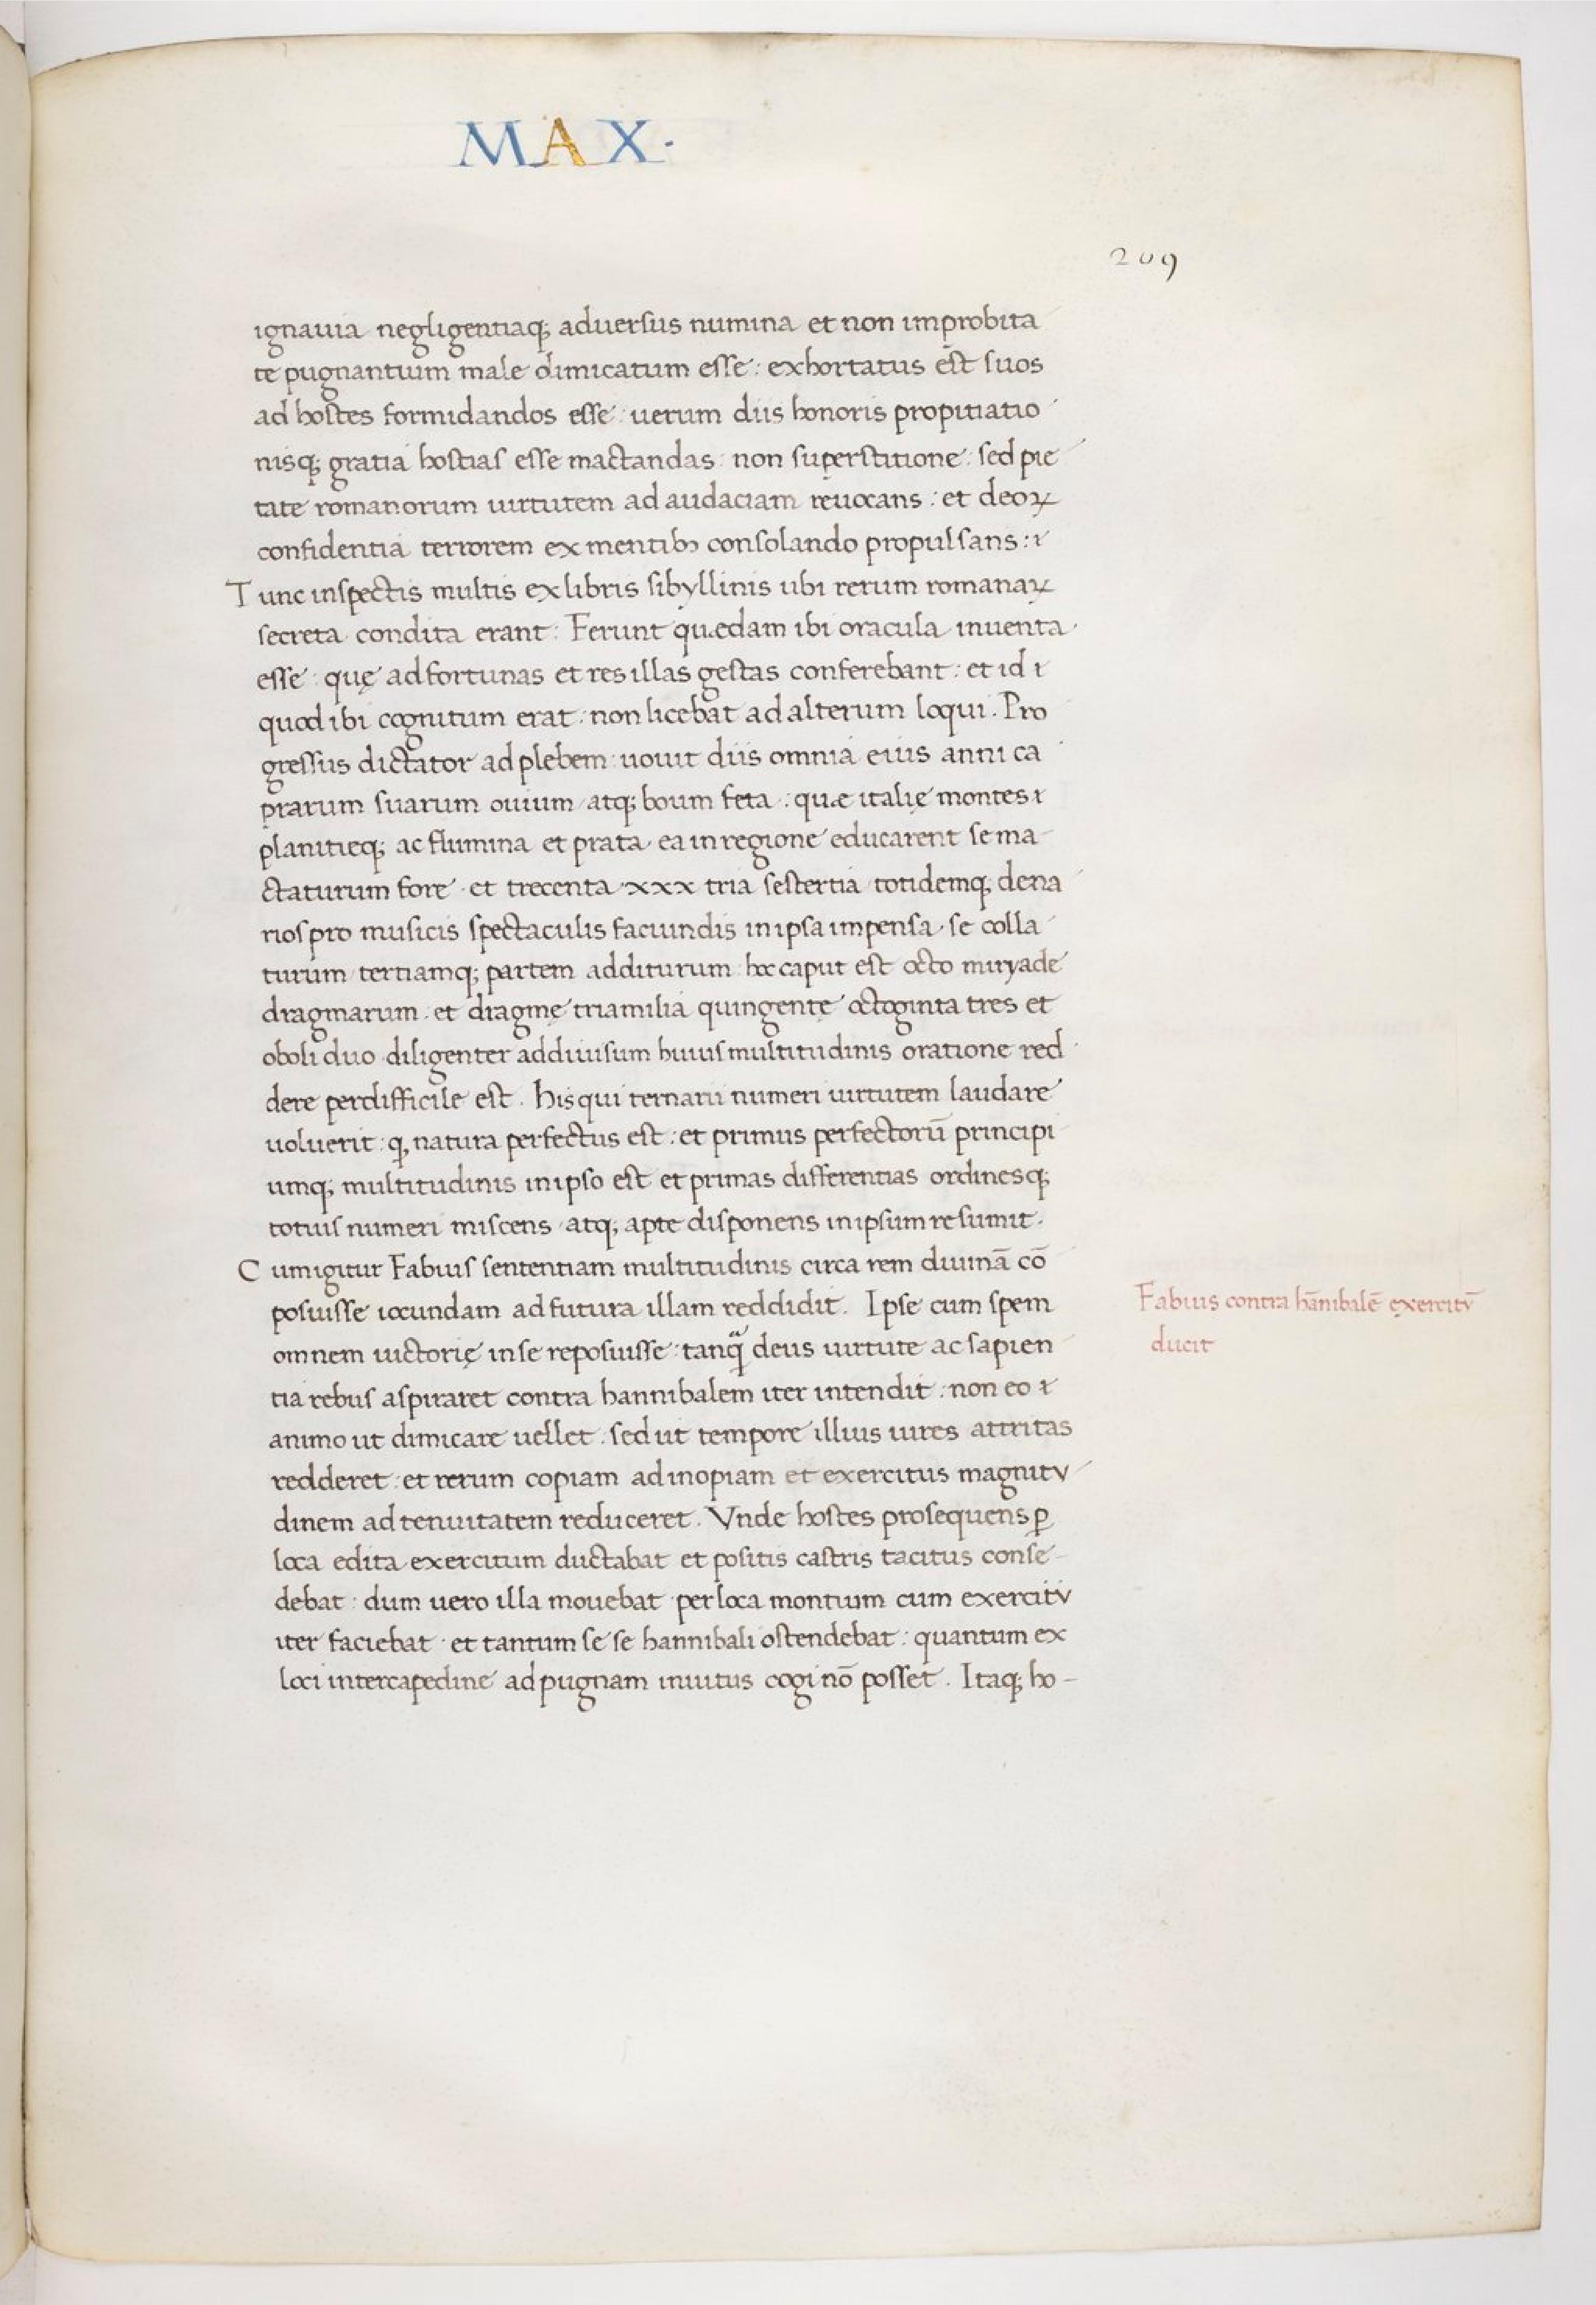 MAX·
209
ignauia negligentiaq; aduersus numina et non improbita
te pugnantium male dimicatum esse: exhortatus est suos
ad hostes formidandos esse: uerum diis honoris propitiatio
nisq; gratia hostias esse mactandas: non superstitione: sed pie
tate romanorum uirtutem ad audaciam reuocans: et deoꝝ
confidentia terrorem ex mentibꝫ consolando propulsans:
Tunc inspectis multis ex libris sibyllinis ubi rerum romanaꝝ
secreta condita erant: Ferunt quædam ibi oracula inuenta
esse: quę ad fortunas et res illas gestas conferebant: et id
quod ibi cognitum erat: non licebat ad alterum loqui. Pro
gressus dictator ad plebem: uouit diis omnia eius anni ca
prarum suarum ouium atq; boum feta: quæ italię montes
planitieq; ac flumina et prata ea in regione educarent se ma
ctaturum fore· et trecenta xxx tria sestertia totidemq; dena
rios pro musicis spectaculis faciundis in ipsa impensa se colla
turum tertiamq; partem additurum hoc caput est octo miryade
dragmarum· et dragmę tria milia quingentę octoginta tres et
oboli duo diligenter ad diuisum huius multitudinis oratione red
dere perdifficile est. his qui ternarii numeri uirtutem laudare
uoluerit: q, natura perfectus est: et primus perfectorū principi
umq; multitudinis in ipso est et primas differentias ordinesq;
totius numeri miscens atq; apte disponens in ipsum resumit.
Cum igitur Fabius sententiam multitudinis circa rem diuinā cō
posuisse iocundam ad futura illam reddidit. Ipse cum spem
omnem uictorię in se reposuisse: tanq̃ deus uirtute ac sapien
tia rebus aspiraret contra hannibalem iter intendit: non eo
animo ut dimicare uellet: sed ut tempore illius uires attritas
redderet: et rerum copiam ad inopiam et exercitus magnitv
dinem ad tenuitatem reduceret. Vnde hostes prosequens ꝑ
loca edita exercitum ductabat et positis castris tacitus conse-
debat: dum uero illa mouebat per loca montium cum exercitv
iter faciebat· et tantum se se hannibali ostendebat: quantum ex
loci intercapedine ad pugnam inuitus cogi nō posset. Itaq; ho-
Fabius contra hānibalē exercitv̄
ducit